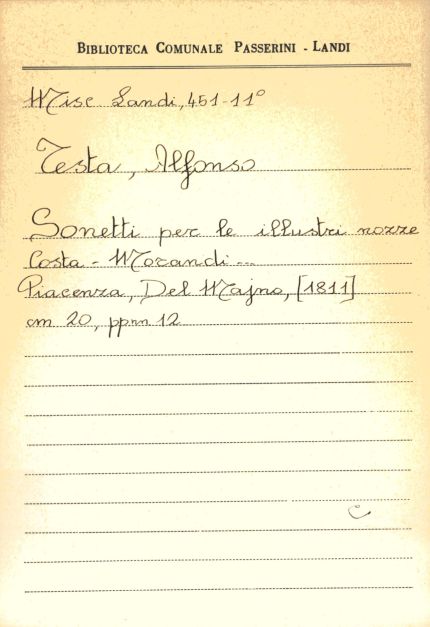 BIBLIOTECA COMUNALE PASSERINI - LANDI
Misc Landi, 451-11°
Testa, Alfonso
Sonetti per le illustri nozze
Costa - Morandi...
Piacenza, Del Majno, [1811]
cm 20, pp.nn 12